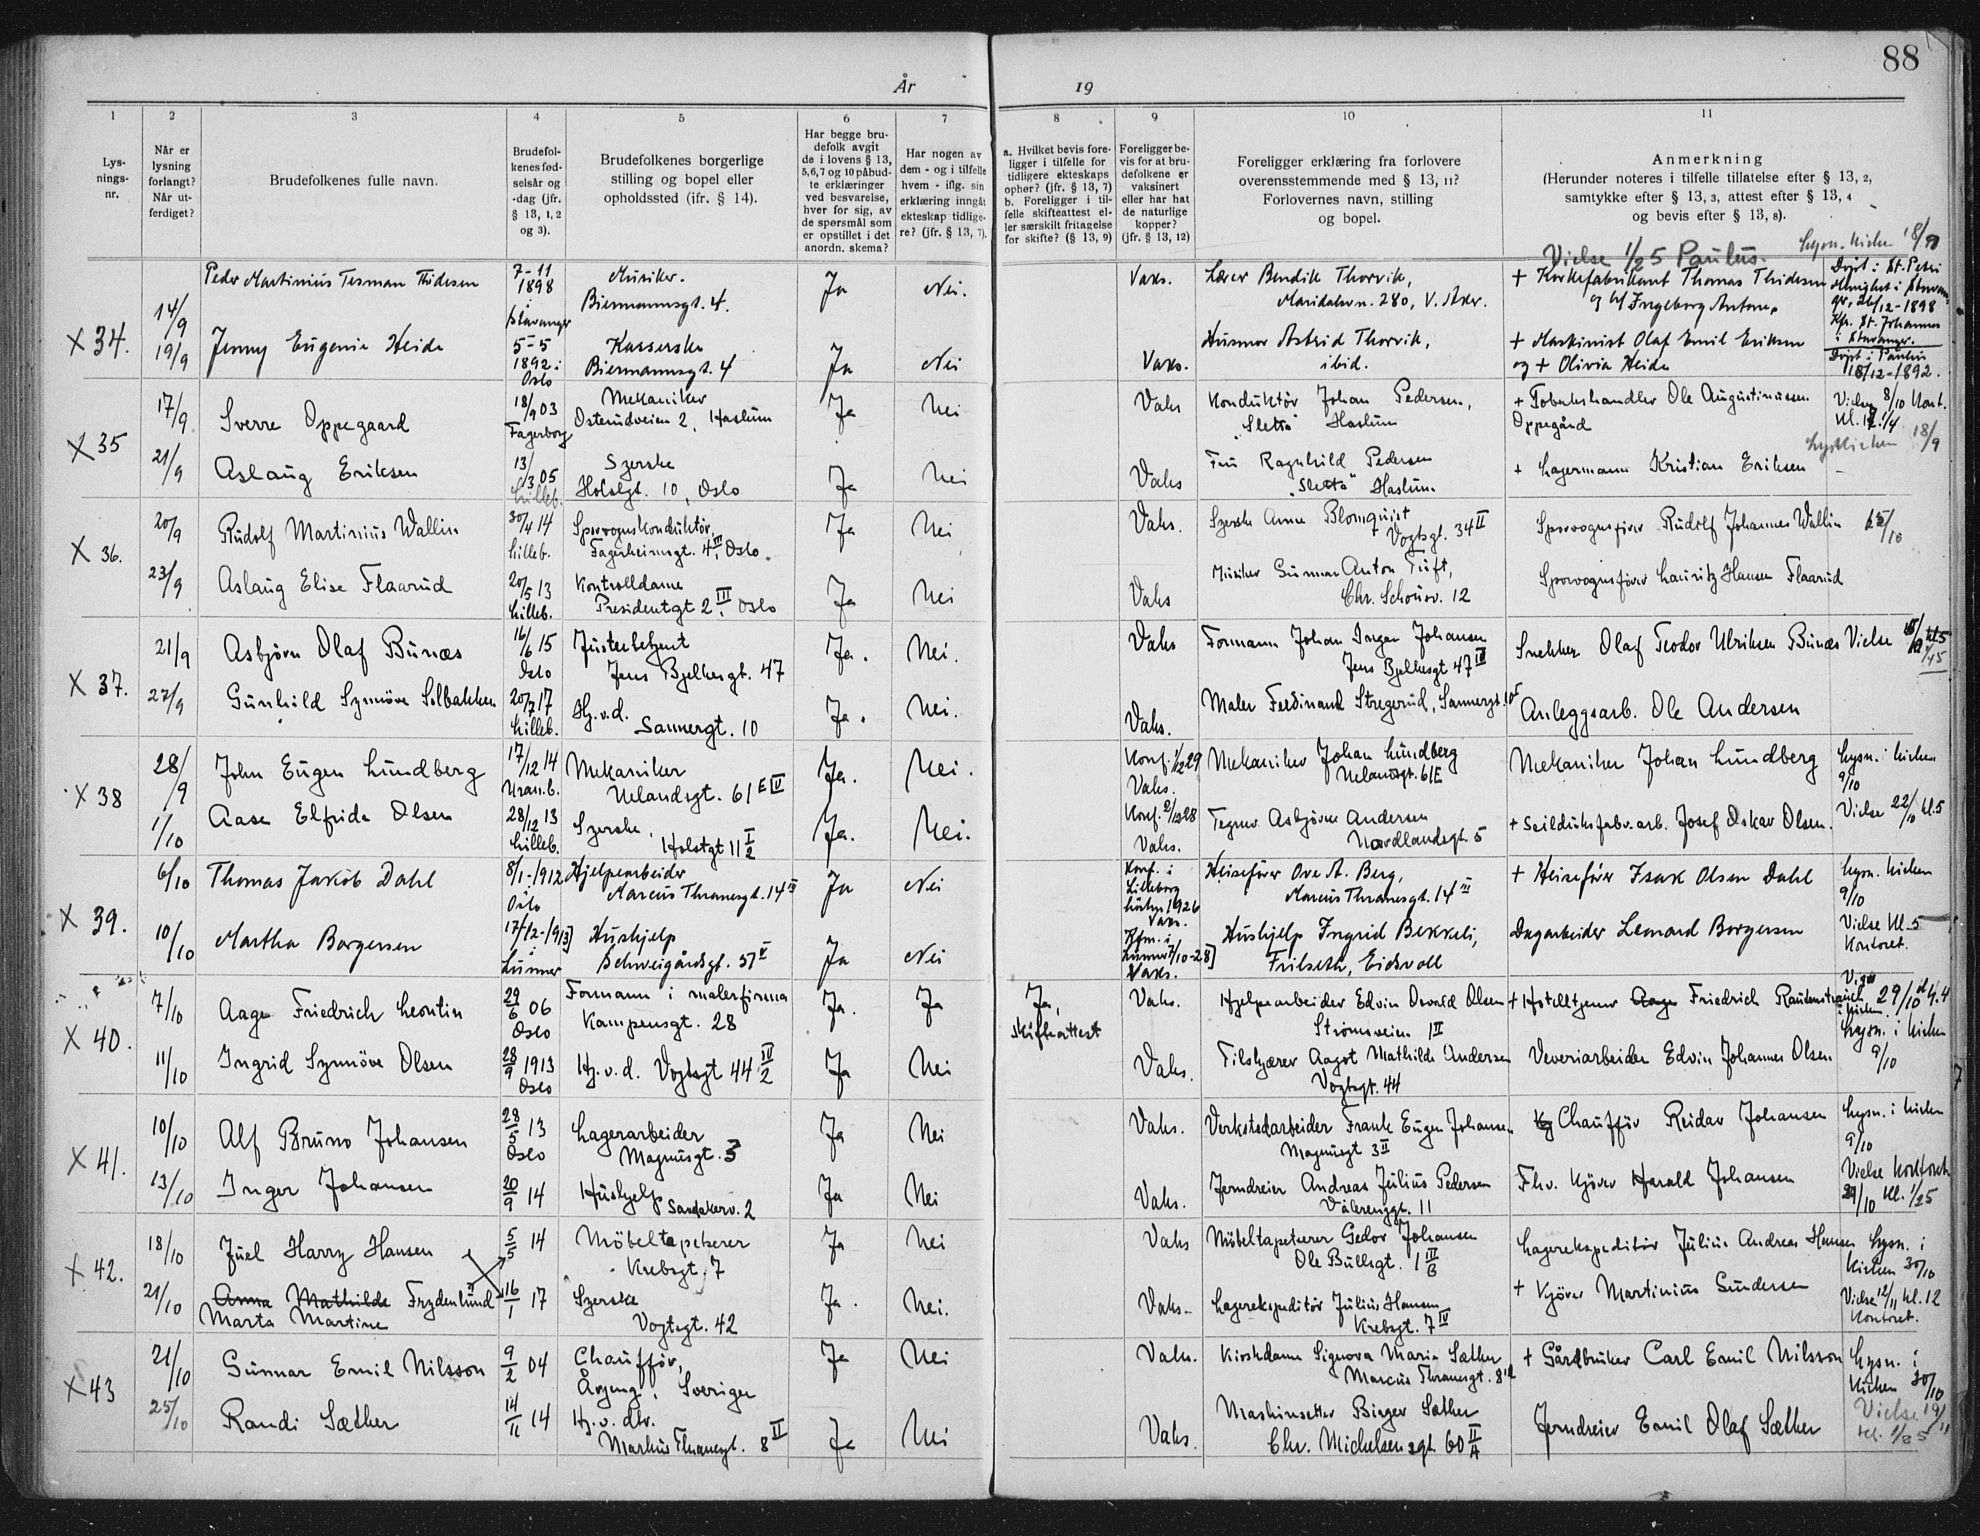 88
År
19
1 2 3 4 5 6 7 8 9 10 11
Lys-
nings-
nr.
Når er
lysning
forlangt?
Når ut-
ferdiget?
Brudefolkenes fulle navn.
Brudefol-
kenes fød-
selsår og
-dag (jfr.
§ 13, 1, 2
og 3).
Brudefolkenes borgerlige
stilling og bopel eller
opholdssted (ifr. § 14).
Har begge bru-
defolk avgit
de i lovens § 13,
5,6,7 og 10 påbud-
te erklæringer
ved besvarelse,
hver for sig, av
de spørsmål som
er opstillet i det
anordn. skema?
Har nogen av
dem - og i tilfelle
hvem - iflg. sin
erklæring inngåt
ekteskap tidlige-
re? (jfr. § 13, 7).
a. Hvilket bevis fore-
ligger i tilfelle for
tidligere ekteskaps
opher? (jfr. § 13, 7)
b. Foreligger i til-
felle skifteattest el-
ler særskilt fritagelse
for skifte? (§ 13, 9)
Foreligger be-
vis for at bru-
defolkene er
vaksinert
eller har hat
de naturlige
kopper?
(jfr. § 13, 12)
Foreligger erklæring fra forlovere
overensstemmende med § 13, 11?
Forlovernes navn, stilling
og bopel.
Anmerkning
(Herunder noteres i tilfelle tillatelse efter § 13, 2,
samtykke efter § 13, 3, attest efter § 13, 4
og bevis efter § 13, 8).
Vielse 1/2 5 Paulus. Lysn. kirken 18/9
X 34.
14/9
19/9
Peder Martinius Tesman Thidesen
7-11
1898
i
Stavanger
Musiker.
Biermannsgt. 4.
Ja
Nei.
Vaks.
Lærer Bendik Thorvik,
Maridalsvn. 280, V. Aker.
+ Korkefabrikant Thomas Thidesen
og Ingeborg Antone,
Døpt i St. Petri
26/12-1898
Kfr. St. Johannes
i Stavanger.
Jenny Eugenie Heide
5-5
1892 i
Oslo
Kasserske
Biermannsgt. 4
Ja
Nei
Vaks.
Husmor Astrid Thorvik,
ibid.
+ Maskinist Olaf Emil Eriksen
og + Olivia Heide
Døpt i Paulus
18/12-1892.
X 35
17/9
21/9
Sverre Oppegaard
18/9 03
Fagerborg
Mekaniker
Osterudveien 2, Haslum
Ja
Nei
Vaks
Konduktør Johan Pedersen,
"Sletta" Haslum
+ Tobakshandler Ole Augustinussen
Oppegård
Vielse 8/10 Kont.
Lyst kirken 18/9
Aslaug Eriksen
13/3 05
Lilleb.
Syerske
Holstgt. 10, Oslo
Ja
Nei
Vaks
Fru Ragnhild Pedersen
"Sletta" Haslum.
+ Lagermann Kristian Eriksen
X 36.
20/9
23/9
Rudolf Martinius Wallin
30/4 14
Lilleb.
Sporvognskonduktør,
Fagerheimsgt. 4 III, Oslo.
Ja
Nei
Vaks.
Syerske Anna Blomquist
Vogtsgt. 34 II
Sporvognsfører Rudolf Johannes Wallin
Aslaug Elise Flaarud
20/5 13
Lilleb.
Kontrolldame
Presidentgt 2 III. Oslo
Ja
Nei
Vaks
Musiker Gunnar Anton Tuft,
Chr. Schousv. 12
Sporvognsfører Lauritz Hansen Flaarud
X 37.
21/9
27/9
Asbjørn Olaf Bunæs
16/6 15
Oslo
Justerbetjent
Jens Bjelkesgt. 47
Ja.
Nei.
Vaks
Formann Johan Inger Johansen
Jens Bjelkesgt 47 IV
Snekker Olaf Teodor Ulriksen Bunæs
Vielse
Gunhild Synnöve Solbakken
20/7 17
Lilleb.
Hj.v.d.
Sannergt. 10
Ja.
Nei.
Vaks.
Maler Ferdinand Stregerud, Sannergt. 10
Anleggsarb. Ole Andersen
X 38
28/9
1/10
John Eugen Lundberg
17/12 14
Uran.b.
Mekaniker
Uelandsgt. 61 E IV
Ja.
Nei.
Konf. 1/12 29
Vaks.
Mekaniker Johan Lundberg
Uelandsgt. 61 E
Mekaniker Johan Lundberg
Lysn. i kirken
9/10
Aase Elfride Olsen
28/12 13
Lilleb.
Syerske,
Holstgt 11 I/2
Ja.
Nei.
Konf. 2/12 28
Vaks.
Tegner Asbjørn Andersen
Nordlandsgt. 5
+ Seilduksfabr.arb. Josef Oskar Olsen.
Vielse 22/10 kl.5
X 39.
6/10
10/10
Thomas Jakob Dahl
8/1-1912
i
Oslo
Hjelpearbeider
Marcus Thranesgt. 14 III
Ja
Nei
Konf. i
Lilleborg
1926
Vaks.
Heisefører Ove A. Berg,
Marcus Thranesgt. 14 III
+ Heisefører Isak Olsen Dahl
Lysn. kirken
9/10
Martha Borgersen
17/12-1913
i
Lunner
Hushjelp
Schweigårdsgt. 57 V
Ja
Nei
Kfm. i
Lunner 7/10-28
Vaks.
Hushjelp Ingrid Bekkeli,
Frilseth, Eidsvoll
Dagarbeider Leonard Borgersen
Vielse kl. 5
Kontoret.
X 40.
7/10
11/10
Aage Friedrich Leontin
29/6 06
Oslo
Formann i malerfirma
Kampensgt. 28
Ja.
Ja
Ja,
skifteattest
Vaks.
Hjelpearbeider Edvin Osvald Olsen
Strømsveien 1 II
+ Hotelltjener Aage Friedrich Rautenstrauch
29/10 kl. 4
i kirken
Lysn. i kirken
9/10
Ingrid Synnöve Olsen
28/9 1913
Oslo
Hj. v. d. Vogtsgt 44 IV/2
Ja
Nei
Vaks.
Tilskjærer Aagot Mathilde Andersen
Vogtsgt. 44
Veveriarbeider Edvin Johannes Olsen
X 41.
10/10
13/10
Alf Bruno Johansen
28/5 13
Oslo
Lagerarbeider
Magnusgt. 3
Ja
Nei
Vaks.
Verkstedarbeider Frank Eugen Johansen
Magnusgt 3 II
Chauffør Reidar Johansen
Lysn. i kirken
9/10
Inger Johansen
20/9 14
Hushjelp
Sandakerv. 2
Ja
Nei
Vaks.
Jerndreier Andreas Julius Pedersen
Vålerenggt. 11
Fhv. Kjører Harald Johansen
Vielse kontoret
kl. 1/2 5
X 42.
18/10
21/10
Juel Harry Hansen
5/5 14
Möbeltapetserer
Krebsgt. 7
Ja
Nei
Vaks
Möbeltapetserer Gedor Johansen
Ole Bullsgt. 1 III/B
Lagerekspeditör Julius Andreas Hansen
Lysn. i
kirken 30/10
Anna Mathilde Frydenlund
Marta Martine
16/1 17
Syerske
Vogtsgt. 42
Ja.
Nei.
Vaks-
Lagerekspeditör Julius Hansen
Krebsgt. 7 IV
+ Kjører Martinius Gundersen
Vielse 12/11 kl. 12
Kontoret.
X 43
21/10
25/10
Gunnar Emil Nilsson
9/2 04
Chauffør,
Årjeng, Sverige
Ja
Nei
Vaks.
Kioskdame Signora Marie Sæther
Marcus Thranesgt. 8
+ Gårdbruker Carl Emil Nilsson
Lysn. i
kirken 30/10
Randi Sæther
14/11 14
Hj. v. dtr.
Markus Thranesgt. 8 II
Ja
Nei
Vaks.
Maskinsetter Birger Sæther
Chr. Michelsensgt. 60 II/A
Jerndreier Emil Olaf Sæther
Vielse 19/11
kl. 1/2 5